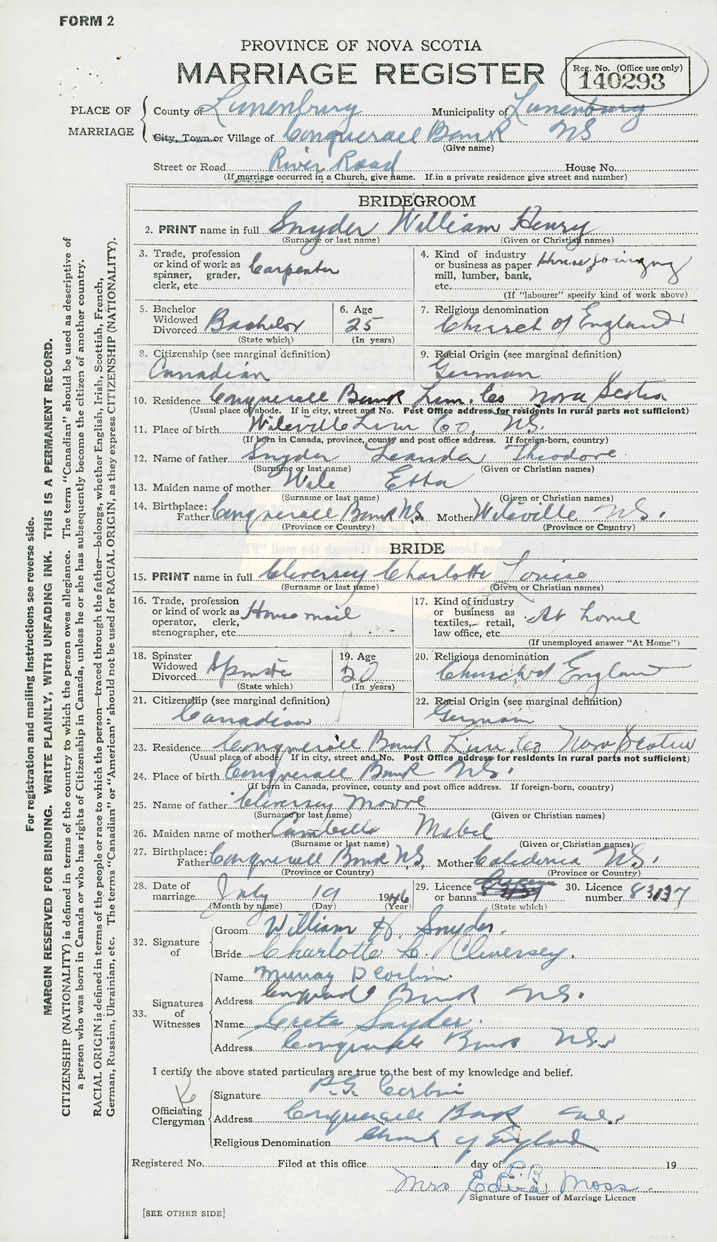 FORM 2
PROVINCE OF NOVA SCOTIA
MARRIAGE REGISTER
Reg. No. (Office use only)
140293
PLACE OF MARRIAGE
County of Lunenburg Municipality of Lunenburg
City, Town or Village of Conquerall Bank NS
(Give name)
Street or Road River Road House No.
(If marriage occurred in a Church, give name. If in a private residence give street and number)
BRIDEGROOM
2. PRINT name in full Snyder William Henry
(Surname or last name) (Given or Christian names)
3. Trade, profession or kind of work as spinner, grader, clerk, etc. Carpenter
4. Kind of industry or business as paper mill, lumber, bank, etc. House
(If "labourer" specify kind of work above)
5. Bachelor Widowed Divorced Bachelor
(State which)
6. Age 25
(In years)
7. Religious denomination Church of England
8. Citizenship (see marginal definition) Canadian
9. Racial Origin (see marginal definition) German
10. Residence Conquerall Bank Lun. Co Nova Scotia
(Usual place of abode. If in city, street and No. Post Office address for residents in rural parts not sufficient)
11. Place of birth Wileville Lun Co, NS.
(If born in Canada, province, county and post office address. If foreign-born, country)
12. Name of father Snyder Leander Theodore
(Surname or last name) (Given or Christian names)
13. Maiden name of mother Wile Etta
(Surname or last name) (Given or Christian names)
14. Birthplace: Father Conquerall Bank NS. Mother Wileville NS.
(Province or Country) (Province or Country)
BRIDE
15. PRINT name in full Cleversey Charlotte Louise
(Surname or last name) (Given or Christian names)
16. Trade, profession or kind of work as operator, clerk, stenographer, etc. House maid
17. Kind of industry or business as textiles, retail, law office, etc. At home
(If unemployed answer "At Home")
18. Spinster Widowed Divorced Spinster
(State which)
19. Age 20
(In years)
20. Religious denomination Church of England
21. Citizenship (see marginal definition) Canadian
22. Racial Origin (see marginal definition) German
23. Residence Conquerall Bank Lun. Co Nova Scotia
(Usual place of abode. If in city, street and No. Post Office address for residents in rural parts not sufficient)
24. Place of birth Conquerall Bank NS.
(If born in Canada, province, county and post office address. If foreign-born, country)
25. Name of father Cleversey Moore
(Surname or last name) (Given or Christian names)
26. Maiden name of mother Mabel
(Surname or last name) (Given or Christian names)
27. Birthplace: Father Conquerall Bank NS. Mother Caledonia NS.
(Province or Country) (Province or Country)
28. Date of marriage July 19 1946
(Month by name) (Day) (Year)
29. Licence or banns
(State which)
30. Licence number 83137
32. Signature of
Groom William H. Snyder.
Bride Charlotte L. Cleversey.
33. Signatures of Witnesses
Name Murray D Corbin
Address Conquerall Bank NS.
Name Greta Snyder.
Address Conquerall Bank NS.
I certify the above stated particulars are true to the best of my knowledge and belief.
Officiating Clergyman
Signature Corbin
Address Conquerall Bank NS.
Religious Denomination Church of England
Registered No. Filed at this office day of 19
Mrs Edina Moss
Signature of Issuer of Marriage Licence
[SEE OTHER SIDE]
For registration and mailing Instructions see reverse side.
MARGIN RESERVED FOR BINDING. WRITE PLAINLY, WITH UNFADING INK. THIS IS A PERMANENT RECORD.
CITIZENSHIP (NATIONALITY) is defined in terms of the country to which the person owes allegiance. The term "Canadian" should be used as descriptive of
a person who was born in Canada or who has rights of Citizenship in Canada, unless he or she has subsequently become the citizen of another country.
RACIAL ORIGIN is defined in terms of the people or race to which the person—traced through the father—belongs, whether English, Irish, Scottish, French,
German, Russian, Ukrainian, etc. The terms "Canadian" or "American" should not be used for RACIAL ORIGIN, as they express CITIZENSHIP (NATIONALITY).